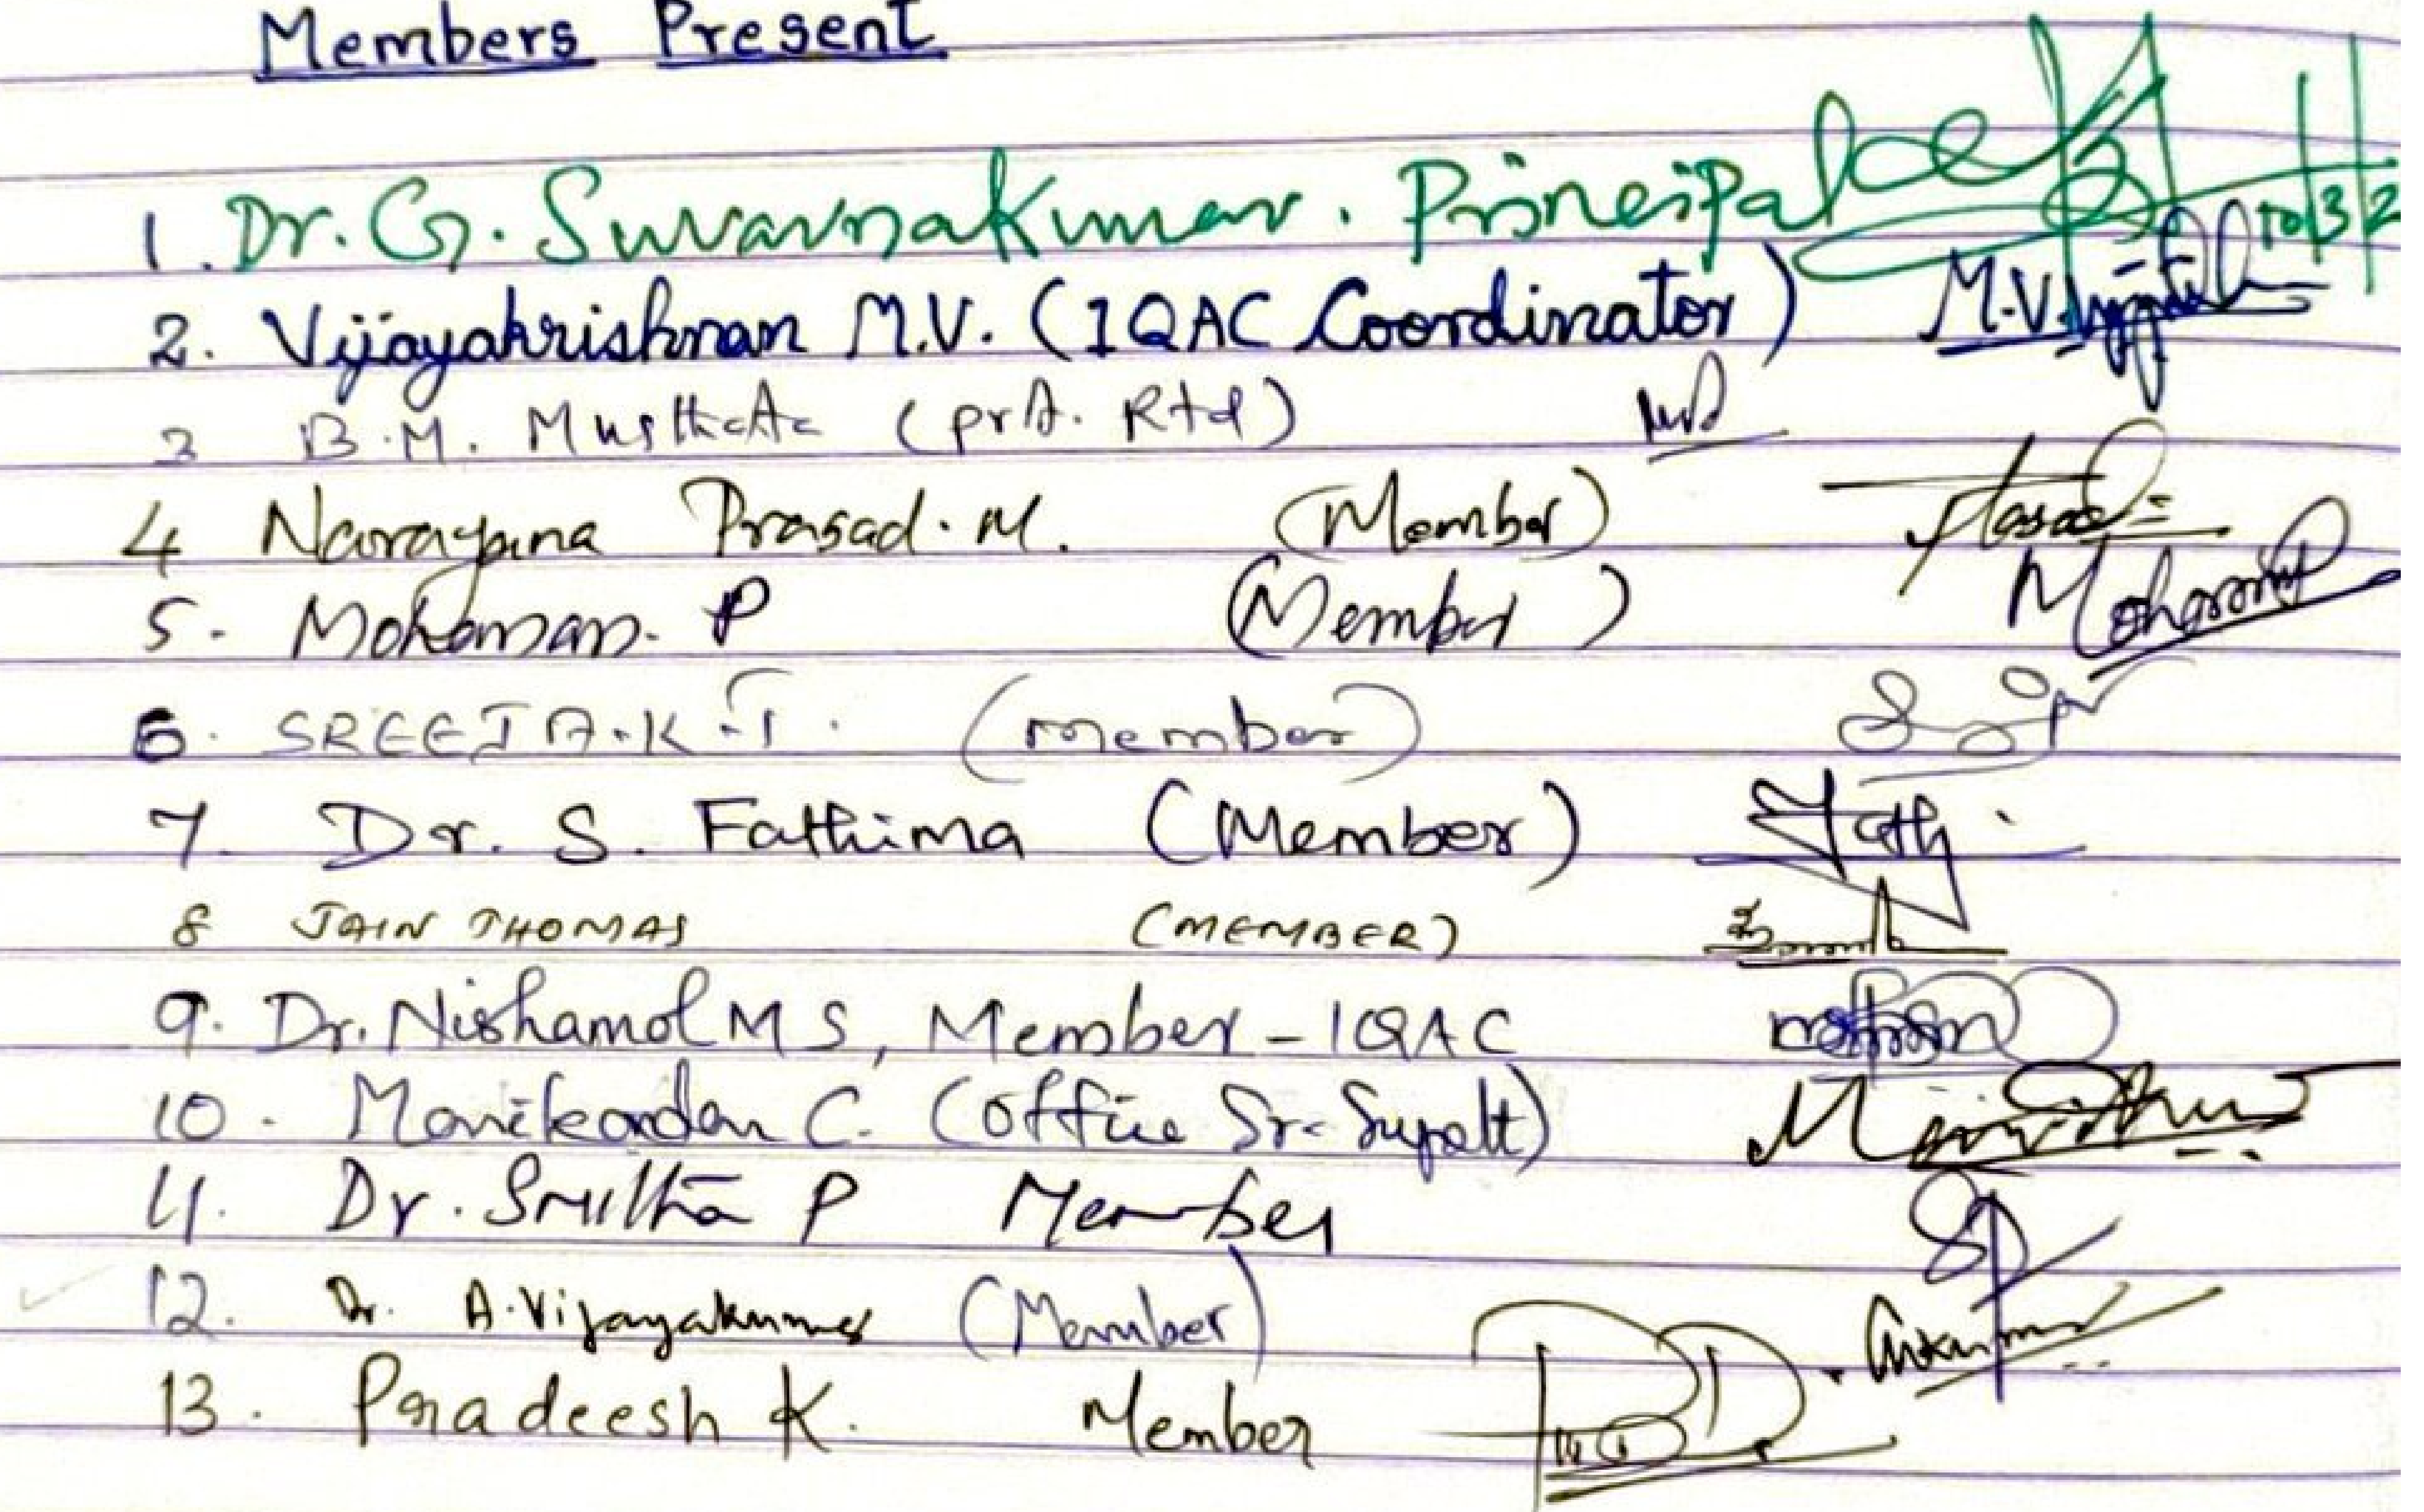 Members Present
1. Dr. G. Suvarnakumar. Principal 10/3/2
2. Vijayakrishnan M.V. (IQAC Coordinator) M.V.
3 B.M. Musthafa (prA. Rtd)
4 Narayana Prasad. M. (Member)
5. Mohanan. P (Member) Mohanan
6. SREEJA.K.T. (member)
7. Dr. S. Fathima (Member) Fath
8 JAIN THOMAS (MEMBER)
9. Dr. Nishamol M S, Member - IQAC
10. Manikandan C. (Office Sr. Supdt)
11. Dr. Smitha P Member
12. Dr. A. Vijayakumar (Member)
13. Pradeesh K. Member